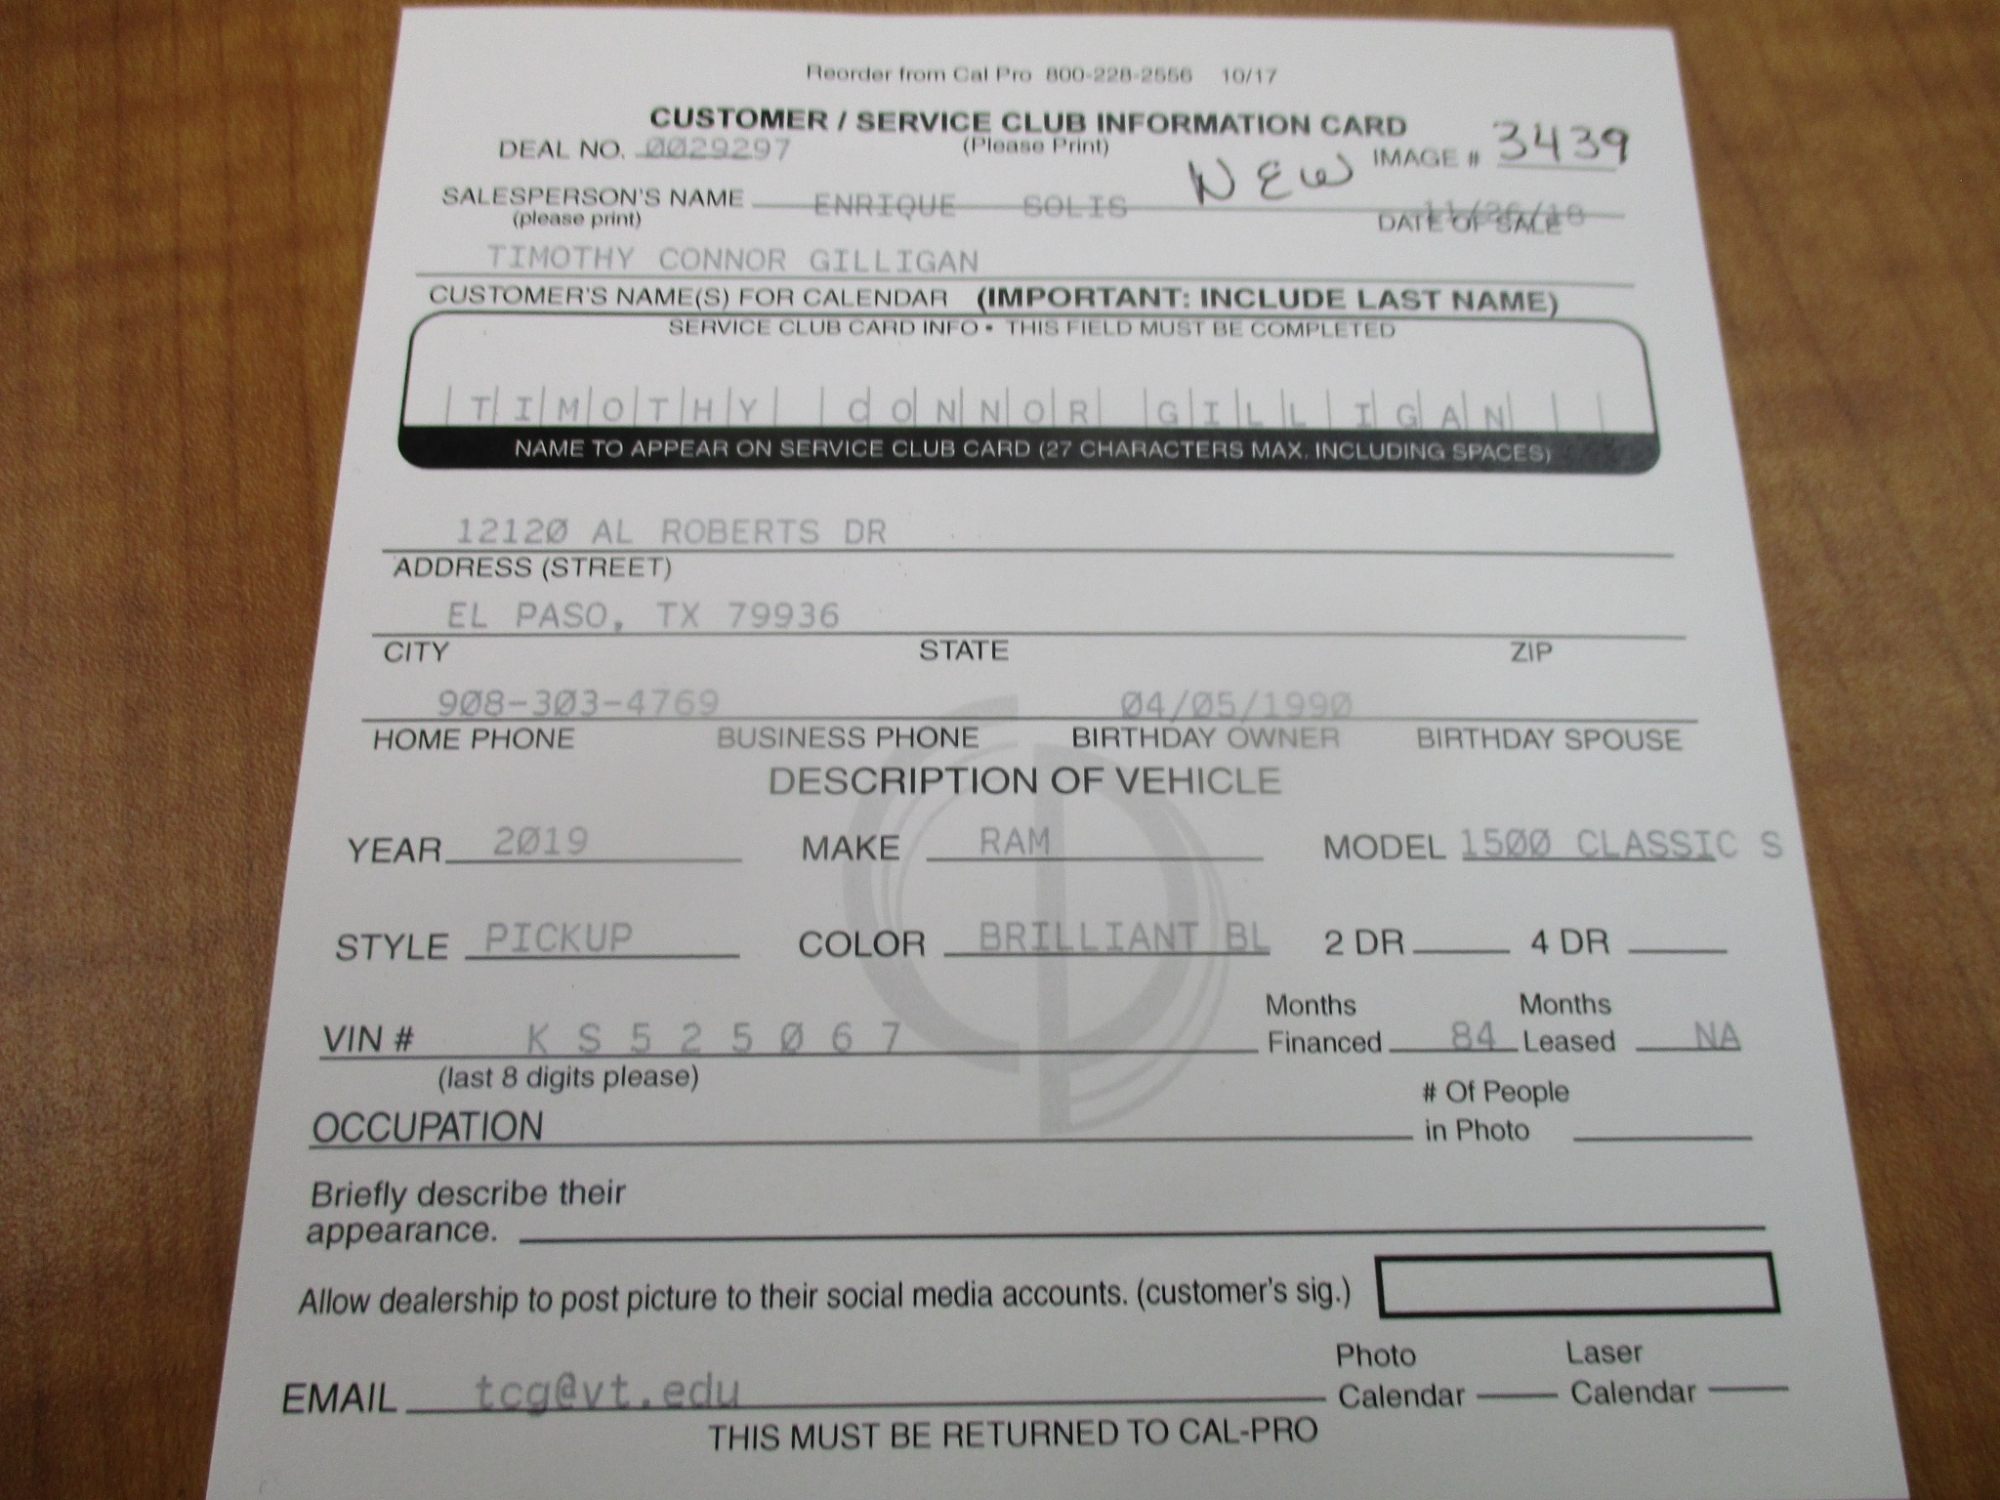 Reorder from Cal Pro 800-228-2556 10/17
CUSTOMER / SERVICE CLUB INFORMATION CARD
DEAL NO. 0029297 (Please Print) NEW IMAGE # 3439
SALESPERSON'S NAME ENRIQUE SOLIS
(please print) DATE OF SALE
TIMOTHY CONNOR GILLIGAN
CUSTOMER'S NAME(S) FOR CALENDAR (IMPORTANT: INCLUDE LAST NAME)
SERVICE CLUB CARD INFO • THIS FIELD MUST BE COMPLETED
TIMOTHY CONNOR GILLIGAN
NAME TO APPEAR ON SERVICE CLUB CARD (27 CHARACTERS MAX. INCLUDING SPACES)
12120 AL ROBERTS DR
ADDRESS (STREET)
EL PASO, TX 79936
CITY STATE ZIP
908-303-4769 04/05/1990
HOME PHONE BUSINESS PHONE BIRTHDAY OWNER BIRTHDAY SPOUSE
DESCRIPTION OF VEHICLE
YEAR 2019 MAKE RAM MODEL 1500 CLASSIC S
STYLE PICKUP COLOR BRILLIANT BL 2 DR 4 DR
VIN # K S 5 2 5 0 6 7 Months Financed 84 Months Leased NA
(last 8 digits please)
OCCUPATION # Of People in Photo
Briefly describe their
appearance.
Allow dealership to post picture to their social media accounts. (customer's sig.)
EMAIL tcg@vt.edu Photo Calendar Laser Calendar
THIS MUST BE RETURNED TO CAL-PRO